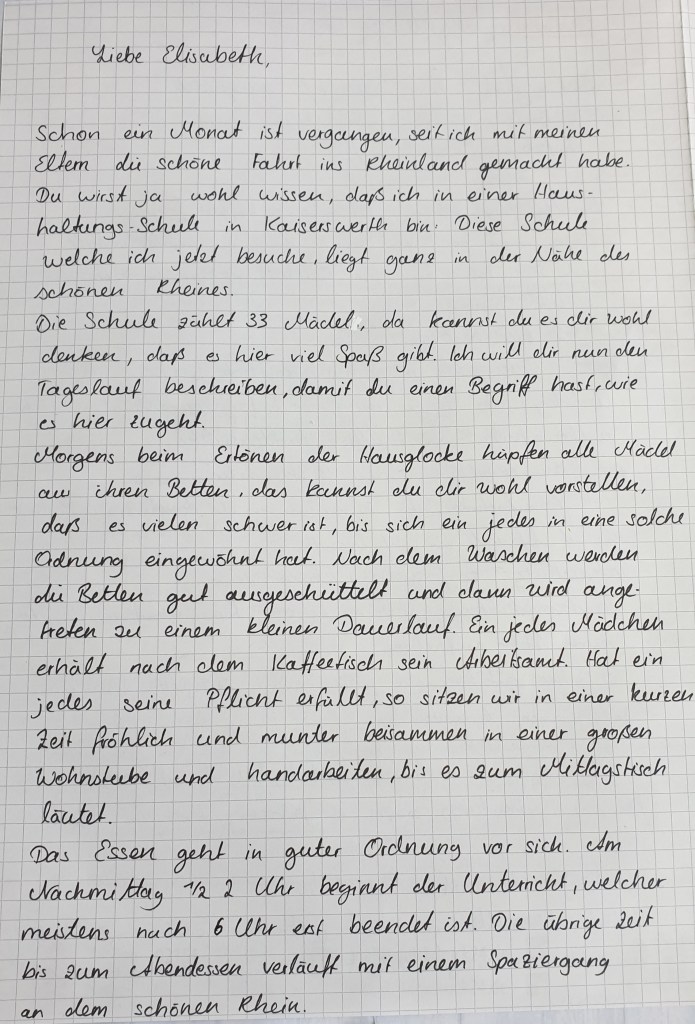 Liebe Elisabeth,
Schon ein Monat ist vergangen, seit ich mit meinen
Eltern die schöne Fahrt ins Rheinland gemacht habe.
Du wirst ja wohl wissen, daß ich in einer Haus-
haltungs-Schule in Kaiserswerth bin. Diese Schule
welche ich jetzt besuche, liegt ganz in der Nähe des
schönen Rheines.
Die Schule zählt 33 Mädel, da kannst du es dir wohl
denken, daß es hier viel Spaß gibt. Ich will dir nun den
Tageslauf beschreiben, damit du einen Begriff hast, wie
es hier zugeht.
Morgens beim Ertönen der Hausglocke hüpfen alle Mädel
aus ihren Betten, das kannst du dir wohl vorstellen,
daß es vielen schwer ist, bis sich ein jedes in eine solche
Ordnung eingewöhnt hat. Nach dem Waschen werden
die Betten gut ausgeschüttelt und dann wird ange-
treten zu einem kleinen Dauerlauf. Ein jedes Mädchen
erhält nach dem Kaffeetisch sein Arbeitsamt. Hat ein
jedes seine Pflicht erfüllt, so sitzen wir in einer kurzen
Zeit fröhlich und munter beisammen in einer großen
Wohnstube und handarbeiten, bis es zum Mittagstisch
läutet.
Das Essen geht in guter Ordnung vor sich. Am
Nachmittag 1/2 2 Uhr beginnt der Unterricht, welcher
meistens nach 6 Uhr erst beendet ist. Die übrige Zeit
bis zum Abendessen verläuft mit einem Spaziergang
an dem schönen Rhein.